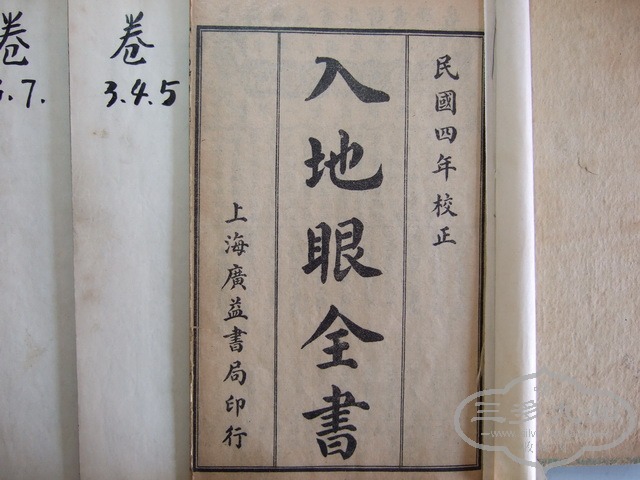 民國四年校正
入地眼全書
上海廣益書局印行
卷
3.4.5
卷
.7.